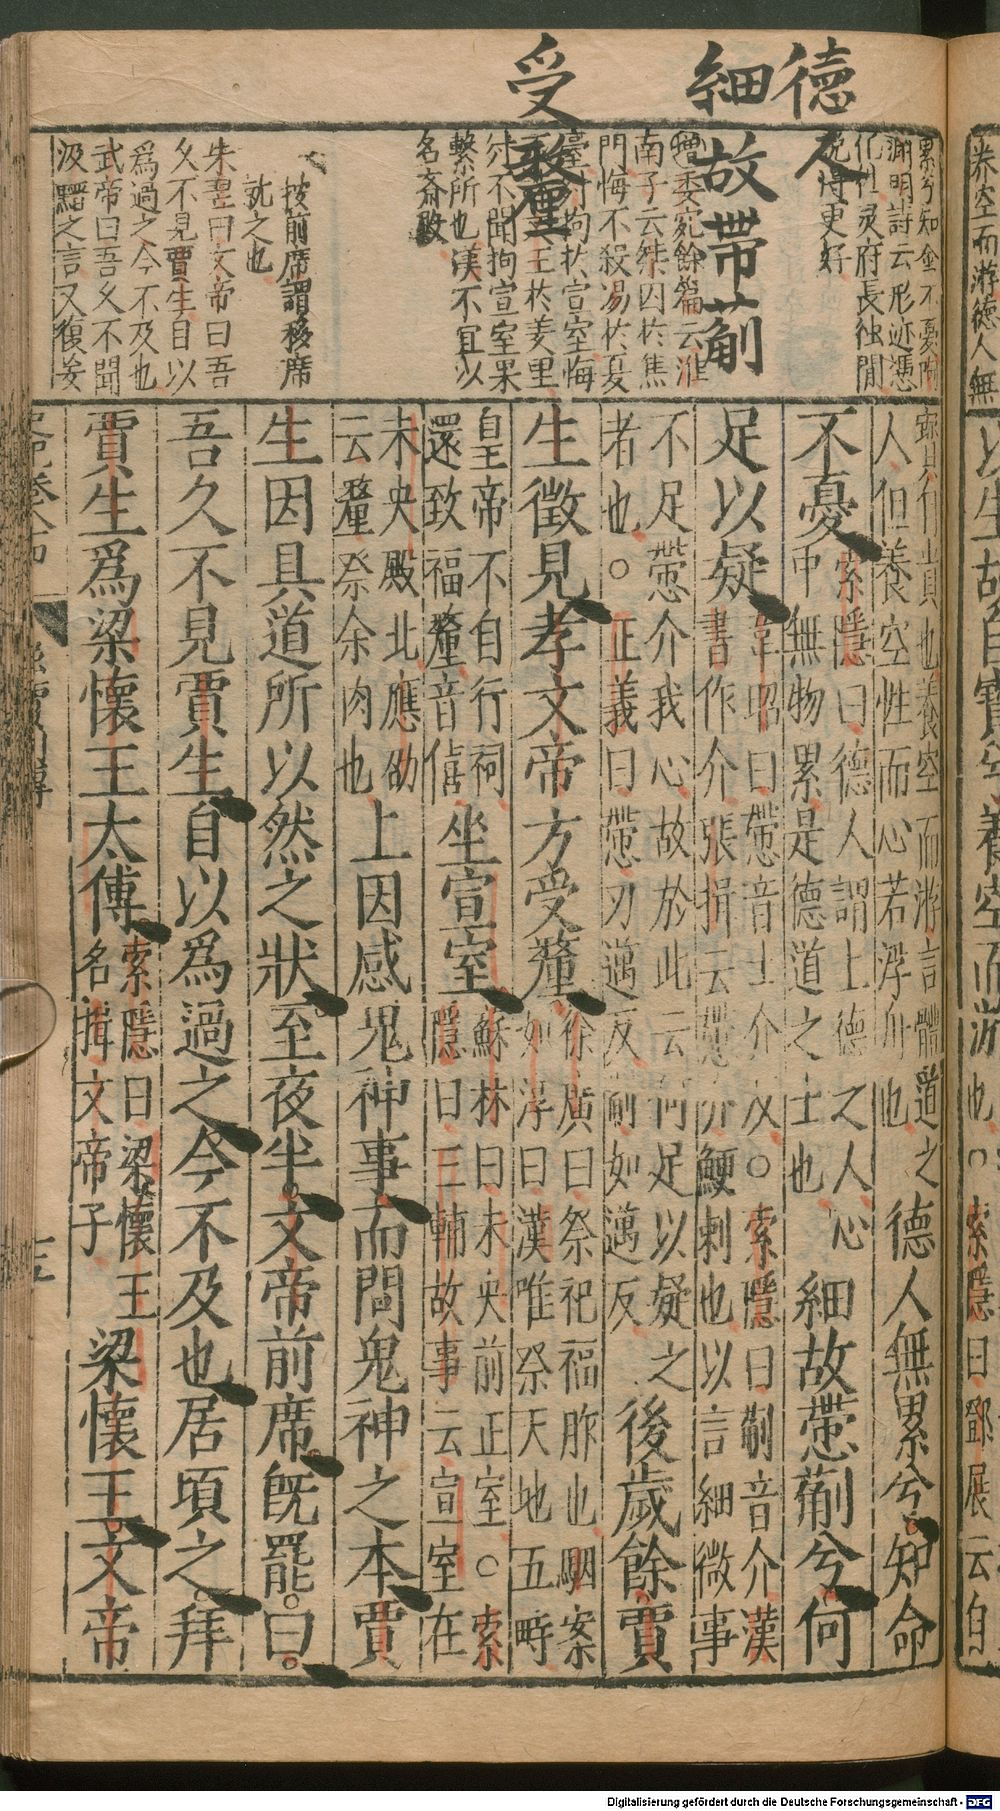 德人
細故蔕葪
受釐
累兮知命不憂陶
淵明詩云形迹憑
化往灵府長独閒
說得更好
憯委宛餘篇云淮
南子云桀囚於焦
門悔不殺湯於夏
臺紂拘於宣室悔
不誅文王於羑里
紂不聞拘宣室果
繫所也漢不宜以
名斎殿
按前席謂移席
就之也
朱翌曰文帝曰吾
久不見賈生自以
為過之今不及也
武帝曰吾久不聞
汲黯之言又復妄
人但養空性而心若浮舟也
德人無累兮知命
不憂
索隱曰德人謂上德之人心
中無物累是德道之士也
細故慸葪兮何
足以疑
韋昭曰慸音士介反○索隱曰葪音介漢
書作介張揖云慸介鯁刺也以言細微事
不足慸介我心故於此云何足以疑之
者也○正義曰慸刃邁反葪如邁反
後歲餘賈
生徵見孝文帝方受釐
徐廣曰祭祀福胙也駰案
如淳曰漢唯祭天地五畤
皇帝不自行祠
還致福釐音僖
坐宣室
蘇林曰未央前正室○索
隱曰三輔故事云宣室在
未央殿北應劭
云釐祭余肉也
上因感鬼神事而問鬼神之本賈
生因具道所以然之狀至夜半文帝前席旣罷曰
吾久不見賈生自以爲過之今不及也居頃之拜
賈生爲梁懷王太傅
索隱曰梁懷王
名揖文帝子
梁懷王文帝
十五
Digitalisierung gefördert durch die Deutsche Forschungsgemeinschaft - DFG